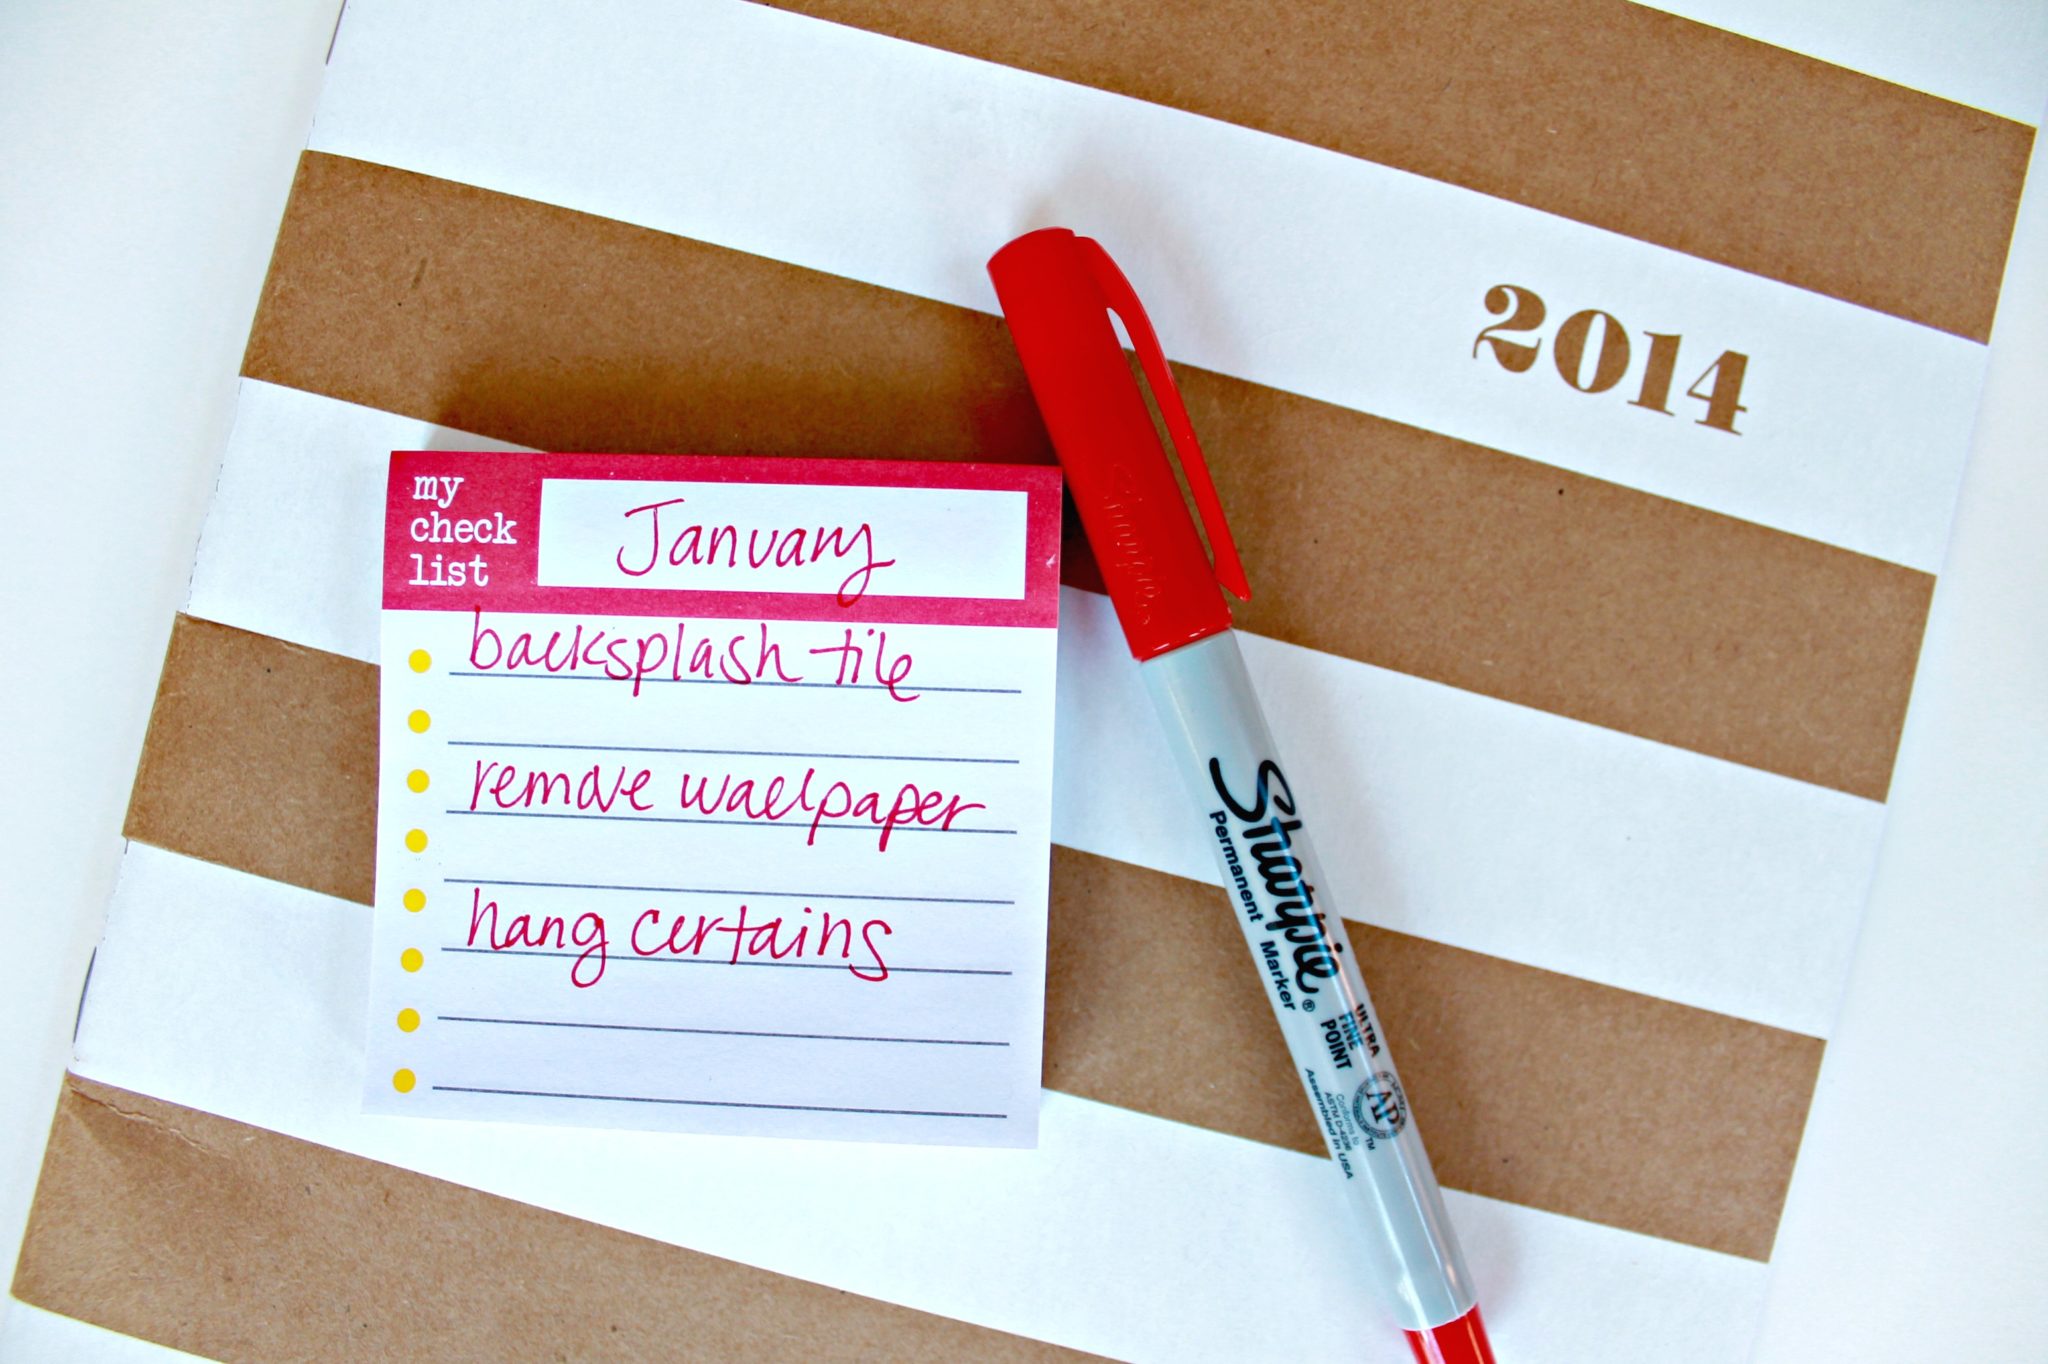 2014
my
check
list
January
backsplash tile
remove wallpaper
hang certains
Sharpie®
Permanent Marker
ULTRA
FINE
POINT
AP
TM
Conforms to
ASTM D-4236
Assembled in USA
Sharpie